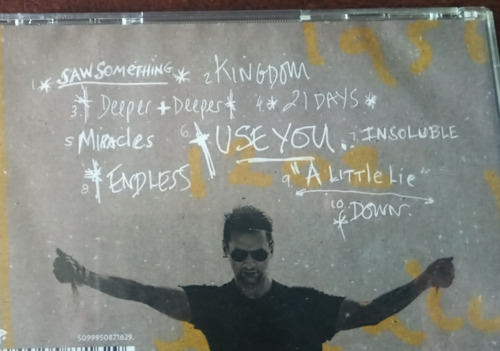 1 * SAW SOMETHING * 2 KINGDOM
3 * Deeper + Deeper * 4 * 21 DAYS *
5 Miracles 6 * USE YOU. 7 INSOLUBLE
8 * ENDLESS 9 "A Little Lie"
10 * DOWN.
5099950871629.